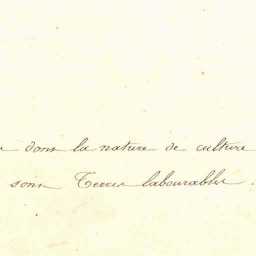 dont la nature de culture
sont Terres labourables.